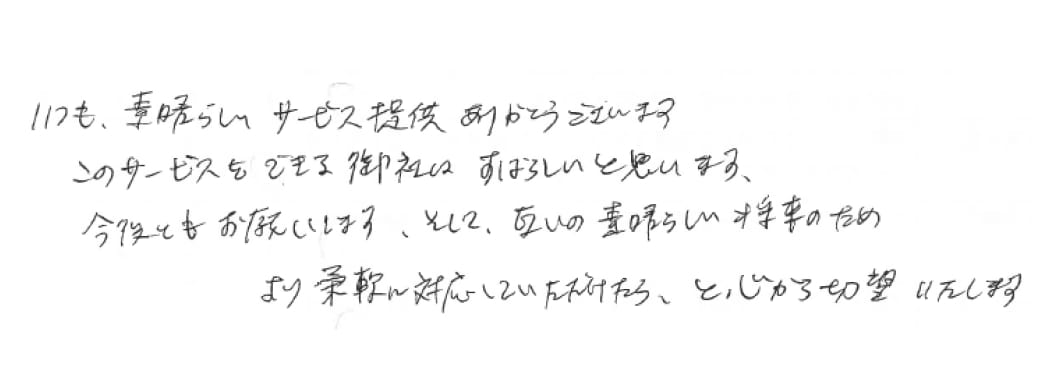 いつも、素晴らしい サービス提供 ありがとうございます
このサービスをできる 御社は すばらしいと思います、
今後とも お願いします、そして、互いの 素晴らしい 将来のため
より 柔軟に対応していただけたら、と心から切望 いたします